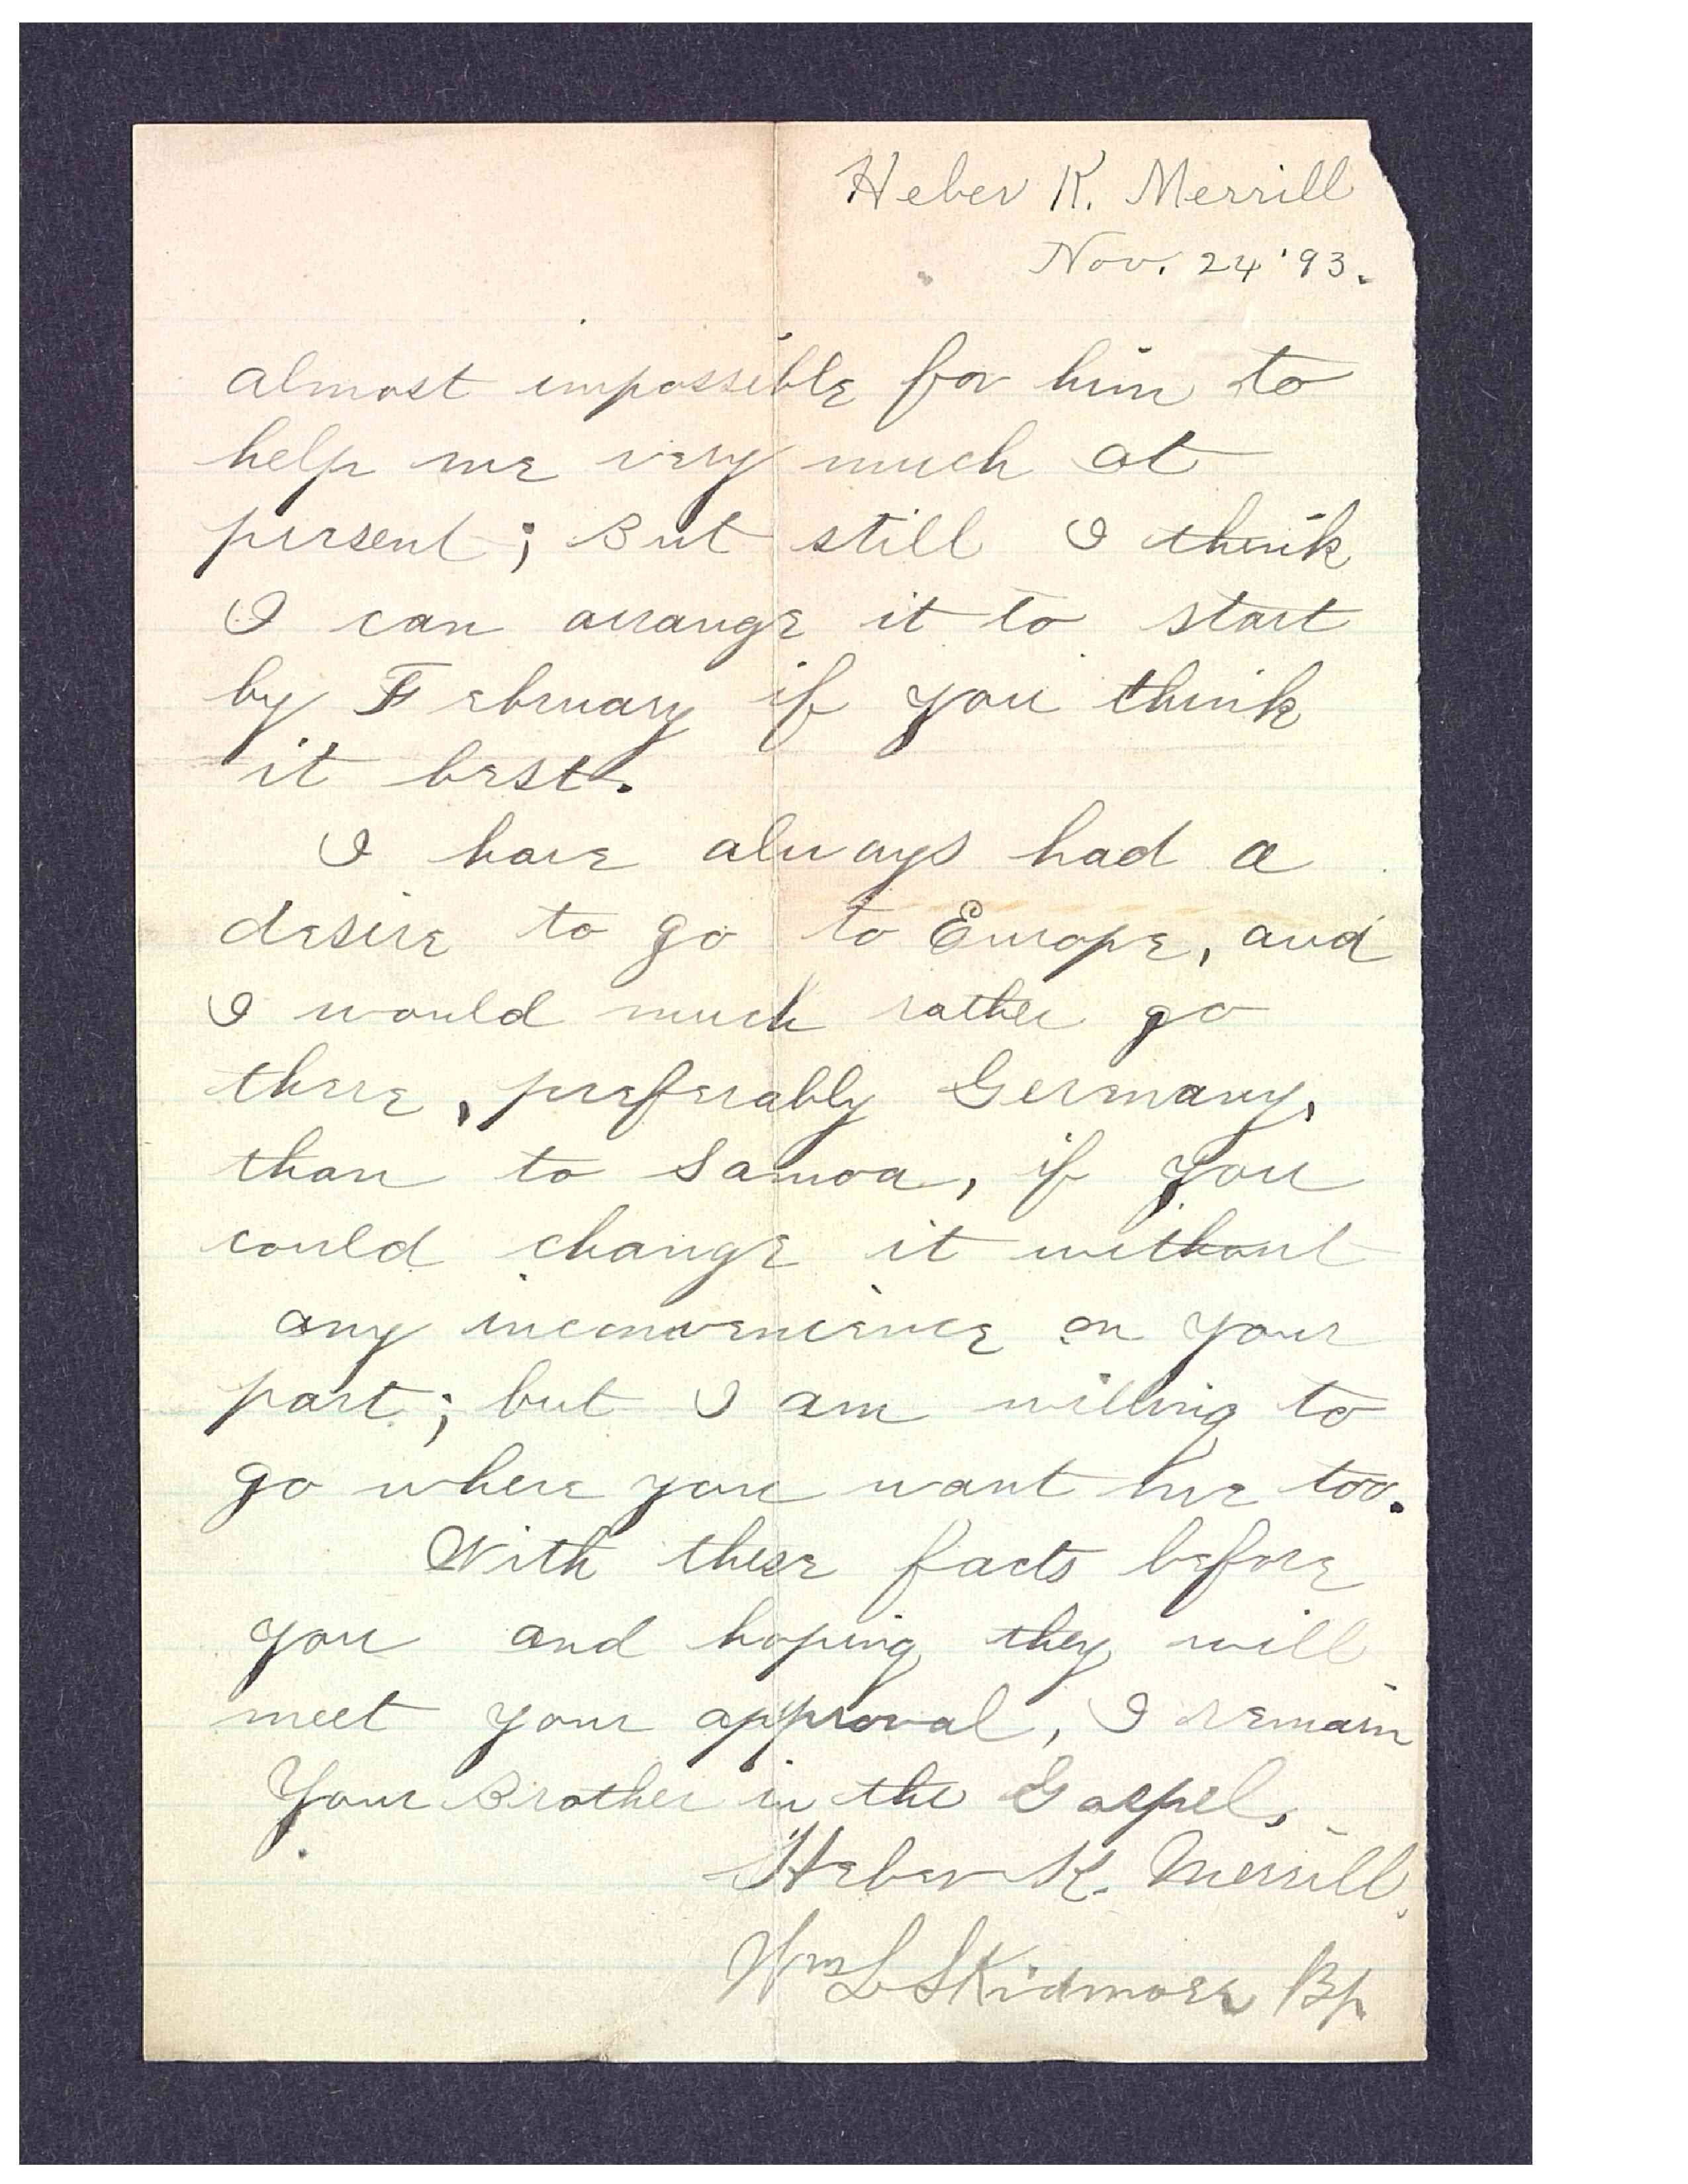 Heber K. Merrill
Nov. 24 '93.
almost impossible for him to
help me very much at
persent; But still I think
I can arrange it to start
by February if you think
it best.
I have always had a
desire to go to Europe, and
I would much rather go
there, preferably Germany,
than to Samoa, if you
could change it without
any inconvenience on your
part; but I am willing to
go where you want me too.
With these facts before
you and hoping they will
meet your approval, I remain
Your Brother in the Gospel,
Heber K. Merrill.
Wm L Skidmore Bp